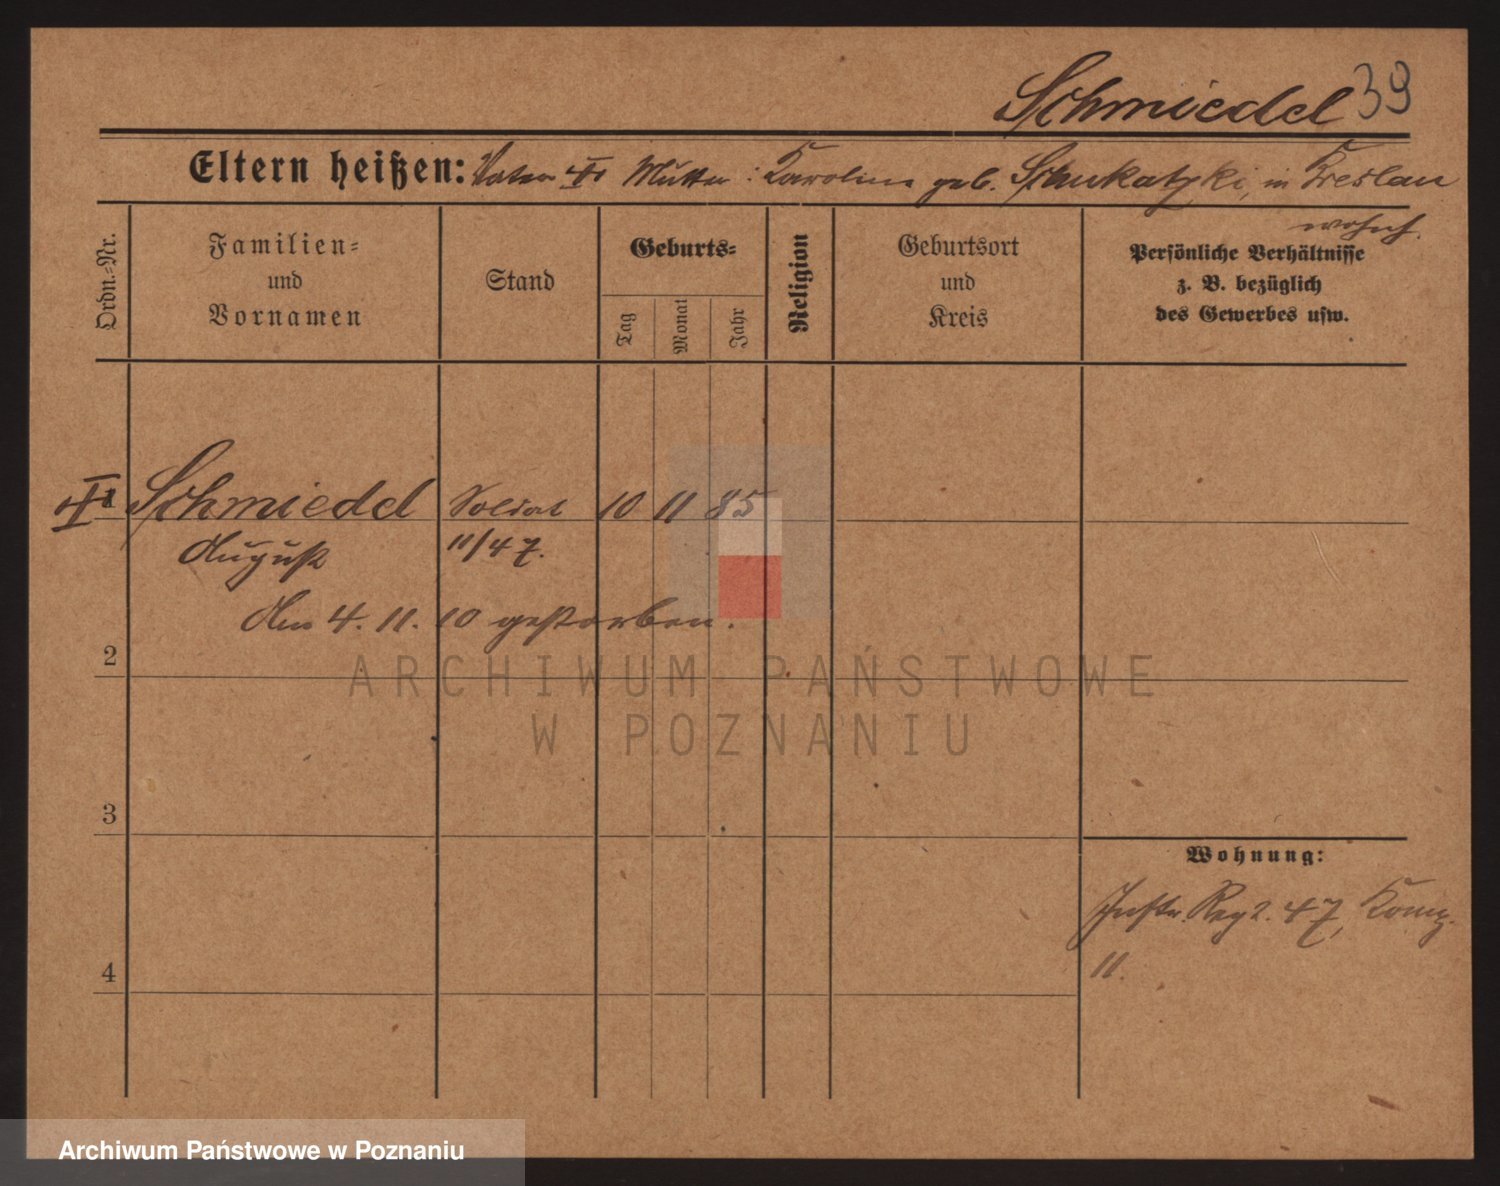 Schmiedel 39
Eltern heißen: Vater Mutter: Karoline geb. Schukatzki, in Breslau
wohnh.
Ordn.-Nr.
Familien-
und
Vornamen
Stand
Geburts-
Tag
Monat
Jahr
Religion
Geburtsort
und
Kreis
Persönliche Verhältnisse
z. B. bezüglich
des Gewerbes usw.
1 Schmiedel Soldat 10 11 85
August 11/47.
Am 4. 11. 10 gestorben.
2
ARCHIWUM PAŃSTWOWE
W POZNANIU
3
Wohnung:
Inftr. Regt. 47, Komp.
11.
4
Archiwum Państwowe w Poznaniu